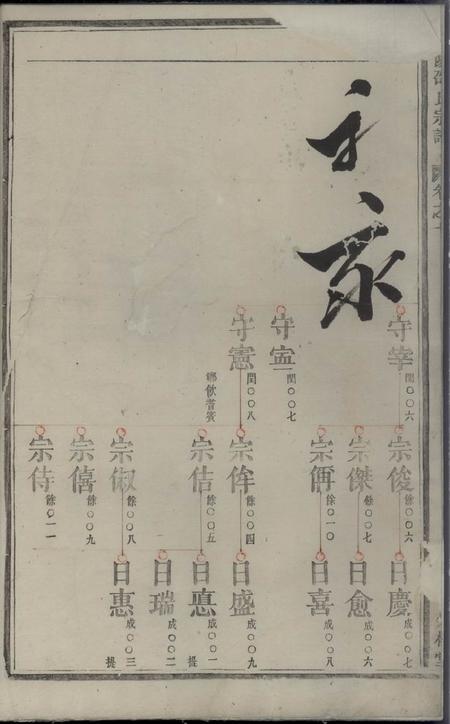 氏宗譜
卷之
守宰
閏〇〇六
守寍
閏〇〇七
守憲
閏〇〇八
鄉飲耆賓
宗俊
餘〇〇六
宗傑
餘〇〇七
宗侢
餘〇一〇
宗侔
餘〇〇四
宗佶
餘〇〇五
宗俶
餘〇〇八
宗僖
餘〇〇九
宗侍
餘〇一一
日慶
成〇〇七
日愈
成〇〇六
日喜
成〇〇八
日盛
成〇〇九
日悳
成〇〇一
提
日瑞
成〇〇二
日惠
成〇〇三
提